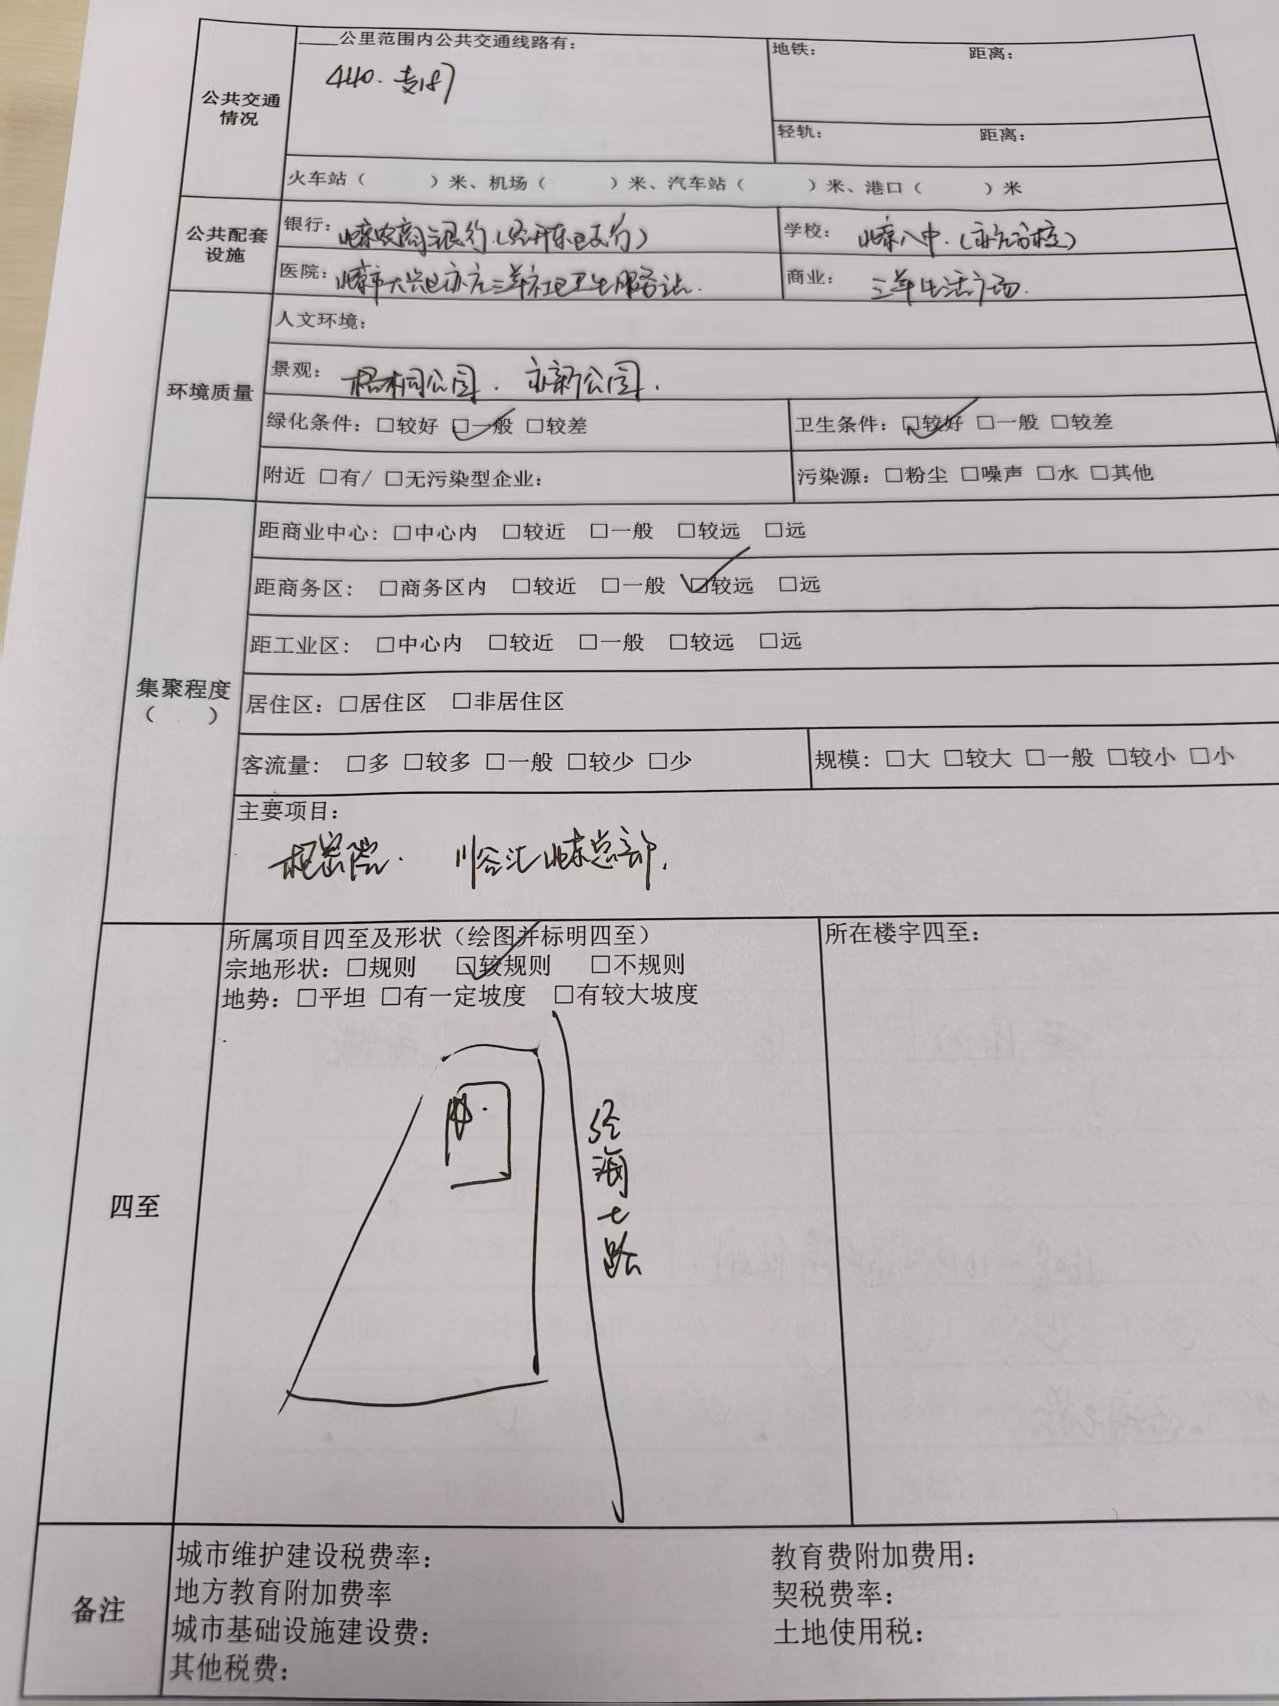 公共交通情况
____公里范围内公共交通线路有：
440. 专187
地铁： 距离：
轻轨： 距离：
火车站（ ）米、机场（ ）米、汽车站（ ）米、港口（ ）米
公共配套设施
银行：北京农商银行（经开东区支行）
学校：北京八中（亦庄分校）
医院：北京市大兴区亦庄三羊社区卫生服务站.
商业：三羊生活广场.
环境质量
人文环境：
景观：梧桐公园. 亦新公园.
绿化条件：□较好 ☑一般 □较差
卫生条件：☑较好 □一般 □较差
附近 □有/ □无污染型企业：
污染源：□粉尘 □噪声 □水 □其他
集聚程度
（ ）
距商业中心：□中心内 □较近 □一般 □较远 □远
距商务区： □商务区内 □较近 □一般 ☑较远 □远
距工业区： □中心内 □较近 □一般 □较远 □远
居住区：□居住区 □非居住区
客流量： □多 □较多 □一般 □较少 □少
规模：□大 □较大 □一般 □较小 □小
主要项目：
川谷汇北京总部.
四至
所属项目四至及形状（绘图并标明四至）
宗地形状：□规则 ☑较规则 □不规则
地势：□平坦 □有一定坡度 □有较大坡度
所在楼宇四至：
经海七路
备注
城市维护建设税费率：
教育费附加费用：
地方教育附加费率
契税费率：
城市基础设施建设费：
土地使用税：
其他税费：